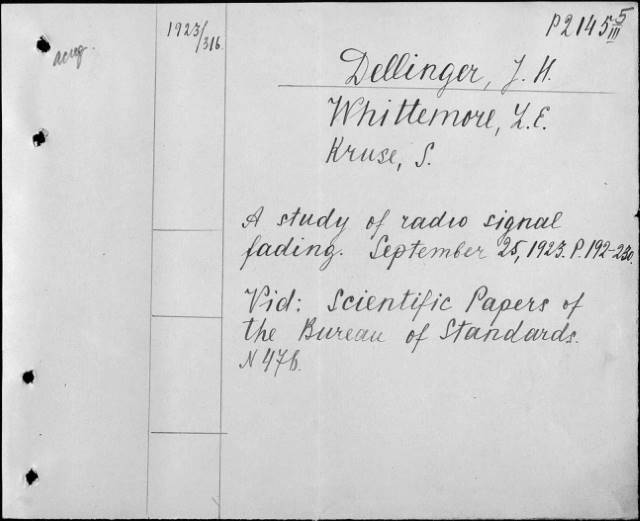 1923/316
P 2145 5/III
Dellinger, J. H.
Whittemore, L. E.
Kruse, S.
A study of radio signal
fading. September 25, 1923. P. 192-230.
Vid: Scientific Papers of
the Bureau of Standards.
N 476.